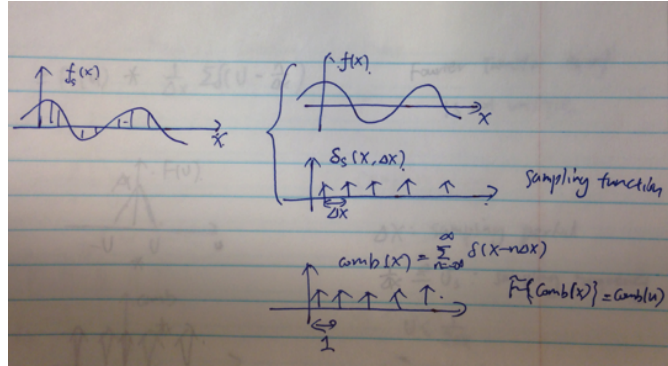 fs(x)
x
f(x)
x
δs(x, Δx)
Sampling function
Δx
comb(x) = ∑_{n=-∞}^{∞} δ(x-nΔx)
F{Comb(x)} = Comb(u)
1